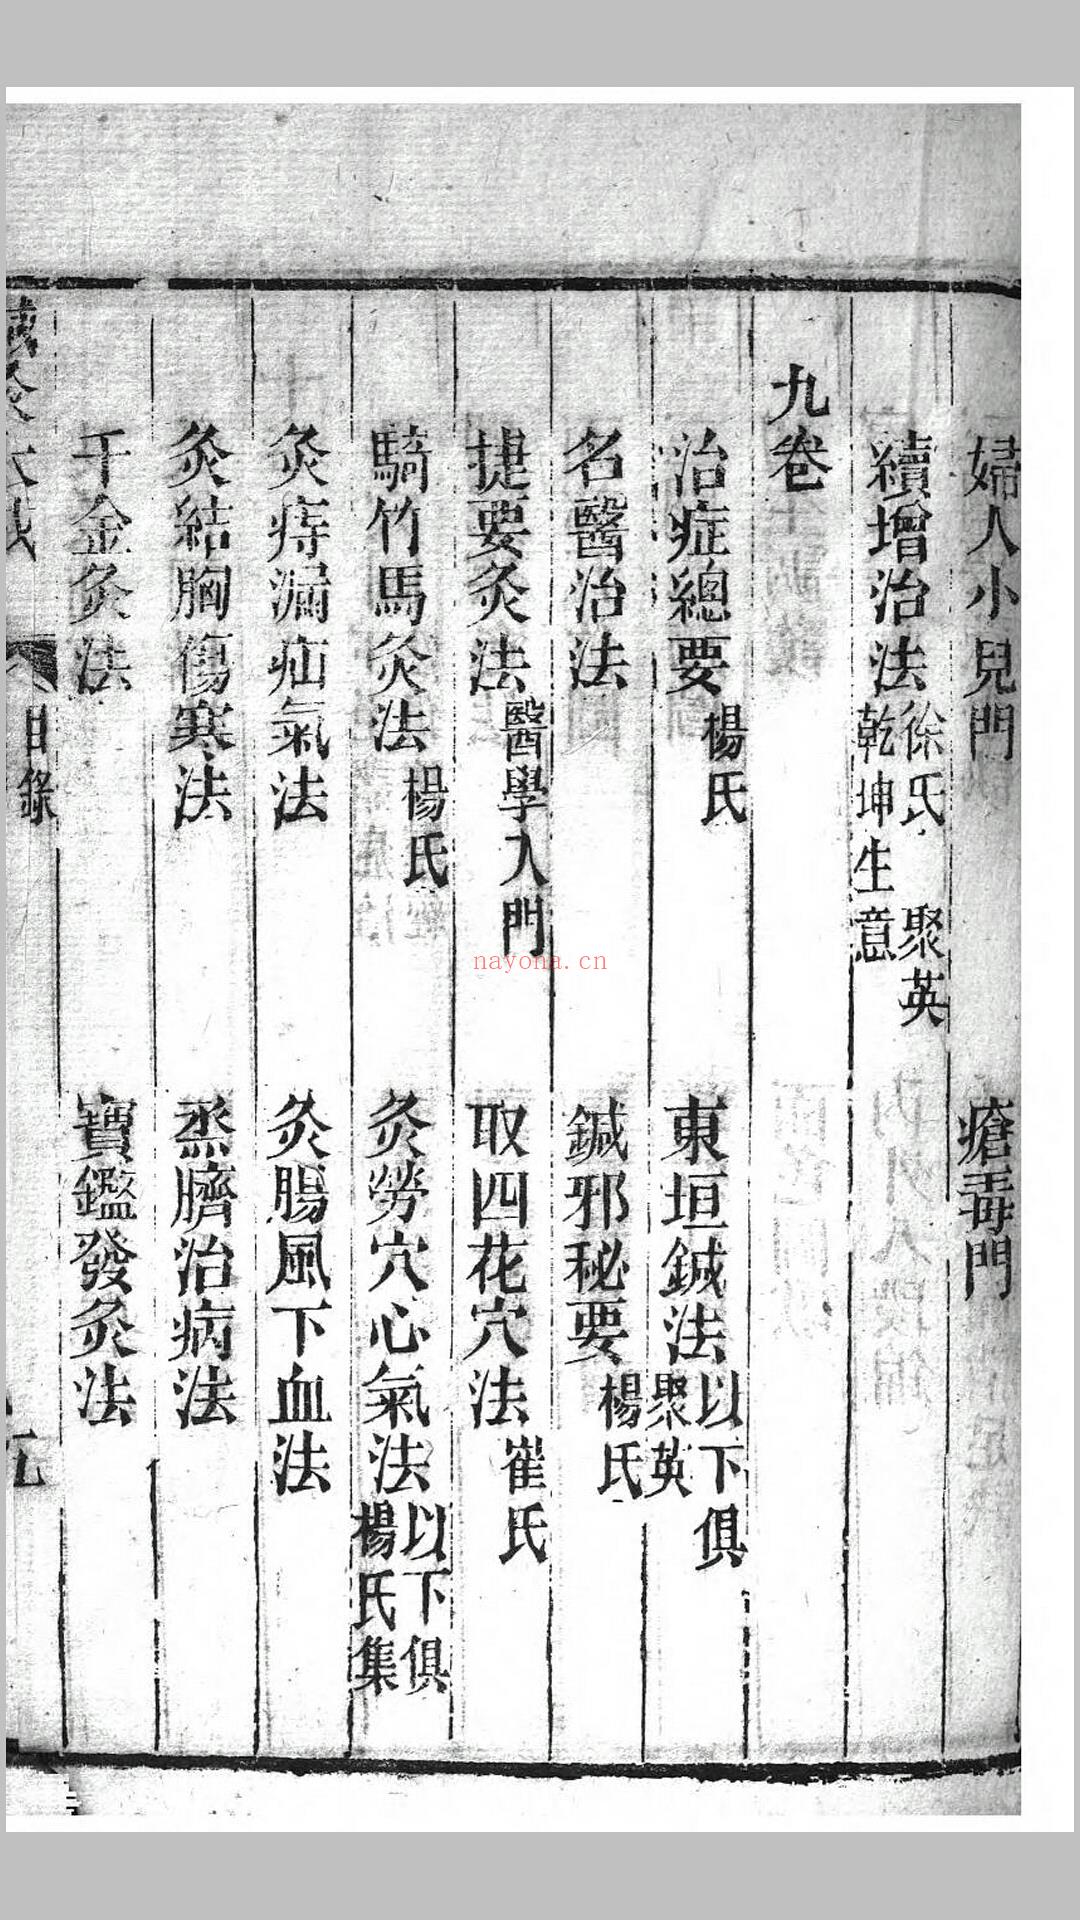 婦人小兒門　瘡毒門
續增治法 徐氏 聚英 乾坤生意
九卷
治症總要 楊氏　東垣鍼法 以下俱聚英
名醫治法　鍼邪秘要 楊氏
捷要灸法 醫學入門　取四花穴法 崔氏
騎竹馬灸法 楊氏　灸勞穴心氣法 以下俱楊氏集
灸痔漏疝氣法　灸腸風下血法
灸結胸傷寒法　烝臍治病法
千金灸法　寶鑑發灸法
目錄
nayona.cn